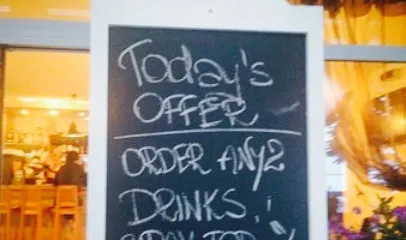 Today's
OFFER
ORDER ANY 2
DRINKS,